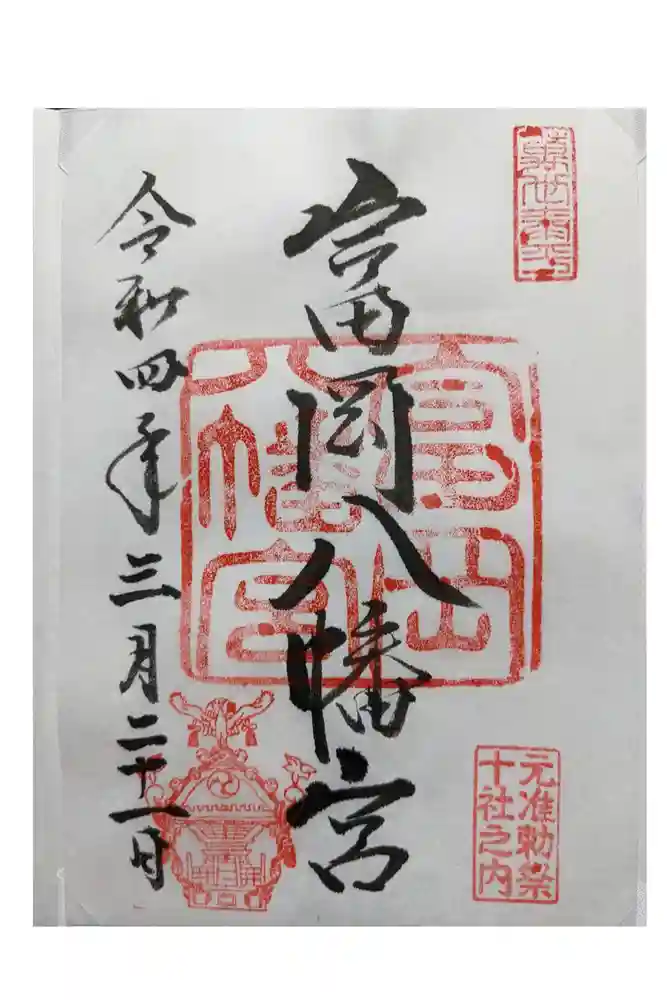 富岡八幡宮
富岡八幡宮
元准勅祭
十社之内
令和四年三月二十一日